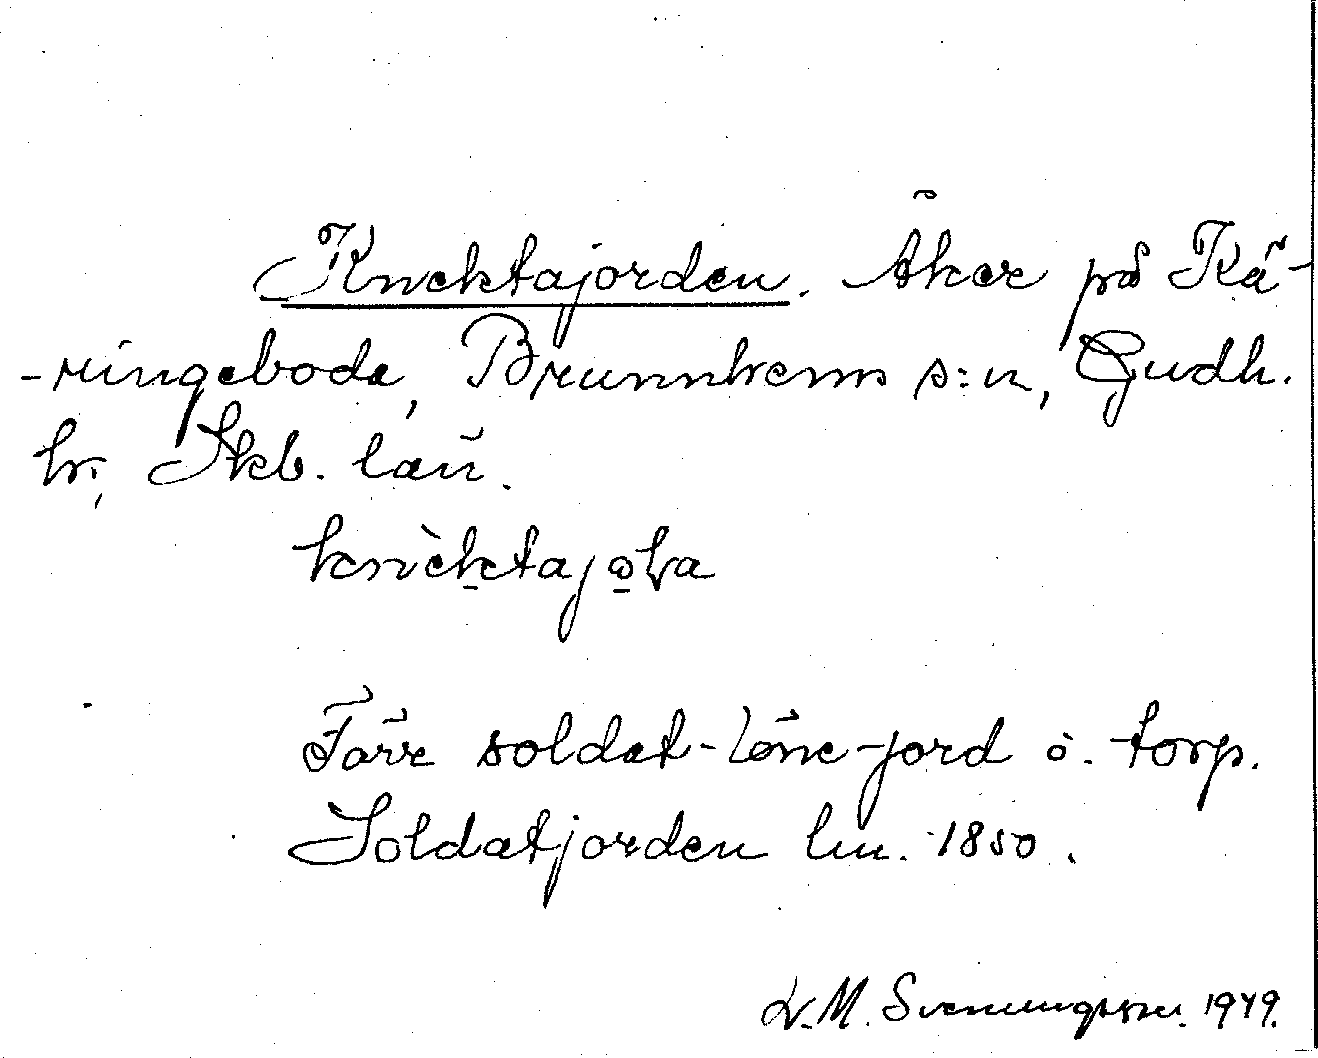 Knektajorden. Åker på Kä-
-ringeboda, Brunnhems s:n, Gudh.
hr, Skb. län.
knèktajola
Förr soldat-löne-jord o. torp.
Soldatjorden lm. 1850.
L. M. Svenungsson. 1949.